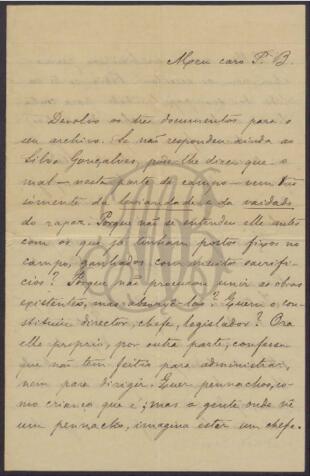 Meu caro P. B.
Devolvo os tres documentos para o
seu archivo. Se não respondeu ainda ao
Silva Gonçalves, póde-lhe dizer que o
mal — nesta parte do campo — vem tão
sómente da leviandade e da vaidade
do rapaz. Porque não se entendeu elle antes
com os que já tinham postos fixos no
campo, ganhados com muitos sacrifi-
cios? Porque não procurou unir as obras
existentes, mas absorvê-las? Quem o con-
stituiu director, chefe, legislador? Ora
elle proprio, por outra parte, confessa
que não tem feitio para administrar,
nem para dirigir. Quer pennachos, co-
mo criança que é; mas a gente onde vê
um pennacho, imagina estar um chefe.